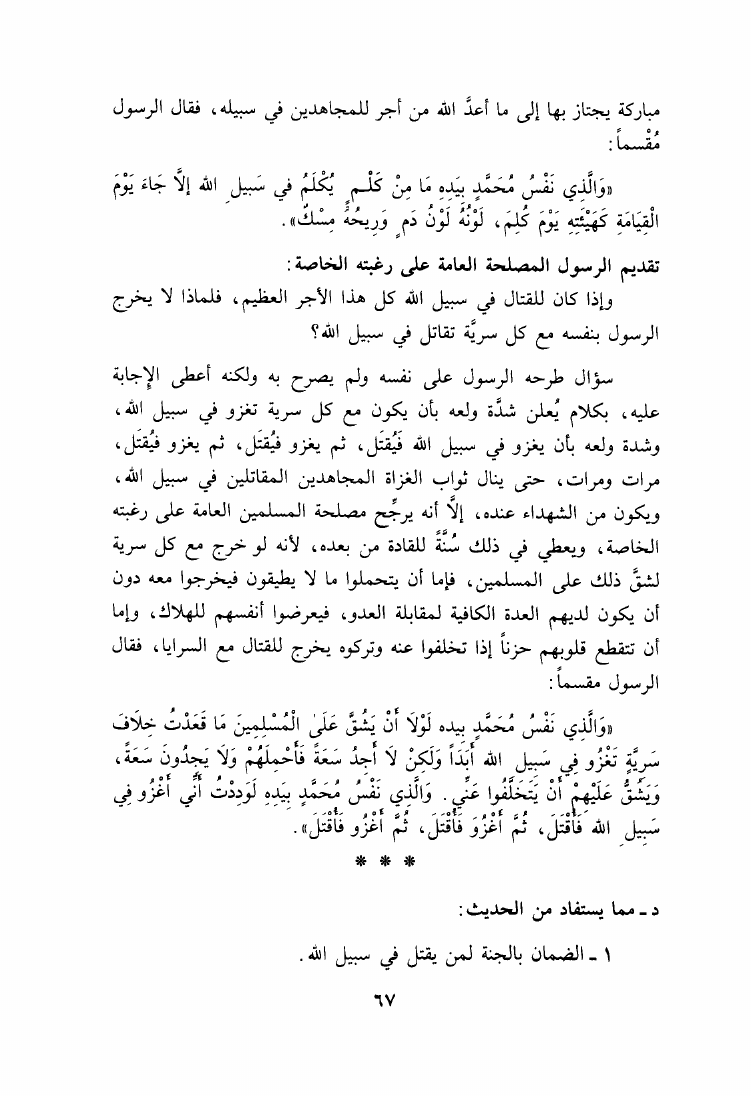 مباركة يجتاز بها إلى ما أعدَّ الله من أجر للمجاهدين في سبيله، فقال الرسول
مُقْسماً:
«وَالَّذِي نَفْسُ مُحَمَّدٍ بِيَدِهِ مَا مِنْ كَلْـمٍ يُكْلَمُ في سَبيلِ الله إلَّا جَاءَ يَوْمَ
الْقِيَامَةِ كَهَيْئَتِهِ يَوْمَ كُلِمَ، لَوْنُهُ لَوْنُ دَمٍ وَرِيحُهُ مِسْكٌ».
تقديم الرسول المصلحة العامة على رغبته الخاصة:
وإذا كان للقتال في سبيل الله كل هذا الأجر العظيم، فلماذا لا يخرج
الرسول بنفسه مع كل سريَّة تقاتل في سبيل الله؟
سؤال طرحه الرسول على نفسه ولم يصرح به ولكنه أعطى الإِجابة
عليه، بكلام يُعلن شدَّة ولعه بأن يكون مع كل سرية تغزو في سبيل الله،
وشدة ولعه بأن يغزو في سبيل الله فَيُقتَل، ثم يغزو فيُقتَل، ثم يغزو فيُقتَل،
مرات ومرات، حتى ينال ثواب الغزاة المجاهدين المقاتلين في سبيل الله،
ويكون من الشهداء عنده، إلَّا أنه يرجِّح مصلحة المسلمين العامة على رغبته
الخاصة، ويعطي في ذلك سُنَّةً للقادة من بعده، لأنه لو خرج مع كل سرية
لشقَّ ذلك على المسلمين، فإما أن يتحملوا ما لا يطيقون فيخرجوا معه دون
أن يكون لديهم العدة الكافية لمقابلة العدو، فيعرضوا أنفسهم للهلاك، وإما
أن تتقطع قلوبهم حزناً إذا تخلفوا عنه وتركوه يخرج للقتال مع السرايا، فقال
الرسول مقسماً:
«وَالَّذِي نَفْسُ مُحَمَّدٍ بيده لَوْلَا أَنْ يَشُقَّ عَلَىٰ الْمُسْلِمِينَ مَا قَعَدْتُ خِلَافَ
سَرِيَّةٍ تَغْزُو فِي سَبِيلِ الله أَبَدَاً وَلَكِنْ لَا أَجِدُ سَعَةً فَأَحْمِلَهُمْ وَلَا يَجِدُونَ سَعَةً،
وَيَشُقُّ عَلَيْهِمْ أَنْ يَتَخَلَّفُوا عَنِّي. وَالَّذِي نَفْسُ مُحَمَّدٍ بِيَدِهِ لَوَدِدْتُ أَنِّي أَغْزُو فِي
سَبِيلِ الله فَأُقْتَلَ، ثُمَّ أَغْزُوَ فَأُقْتَلَ، ثُمَّ أَغْزُو فَأُقْتَلَ».
* * *
د ـ مما يستفاد من الحديث:
١ ـ الضمان بالجنة لمن يقتل في سبيل الله.
٦٧